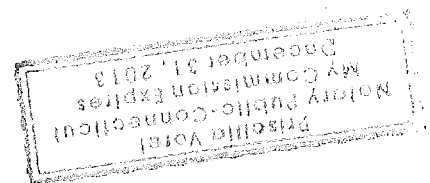 Priscilla Vorel
Notary Public-Connecticut
My Commission Expires
December 31, 2013